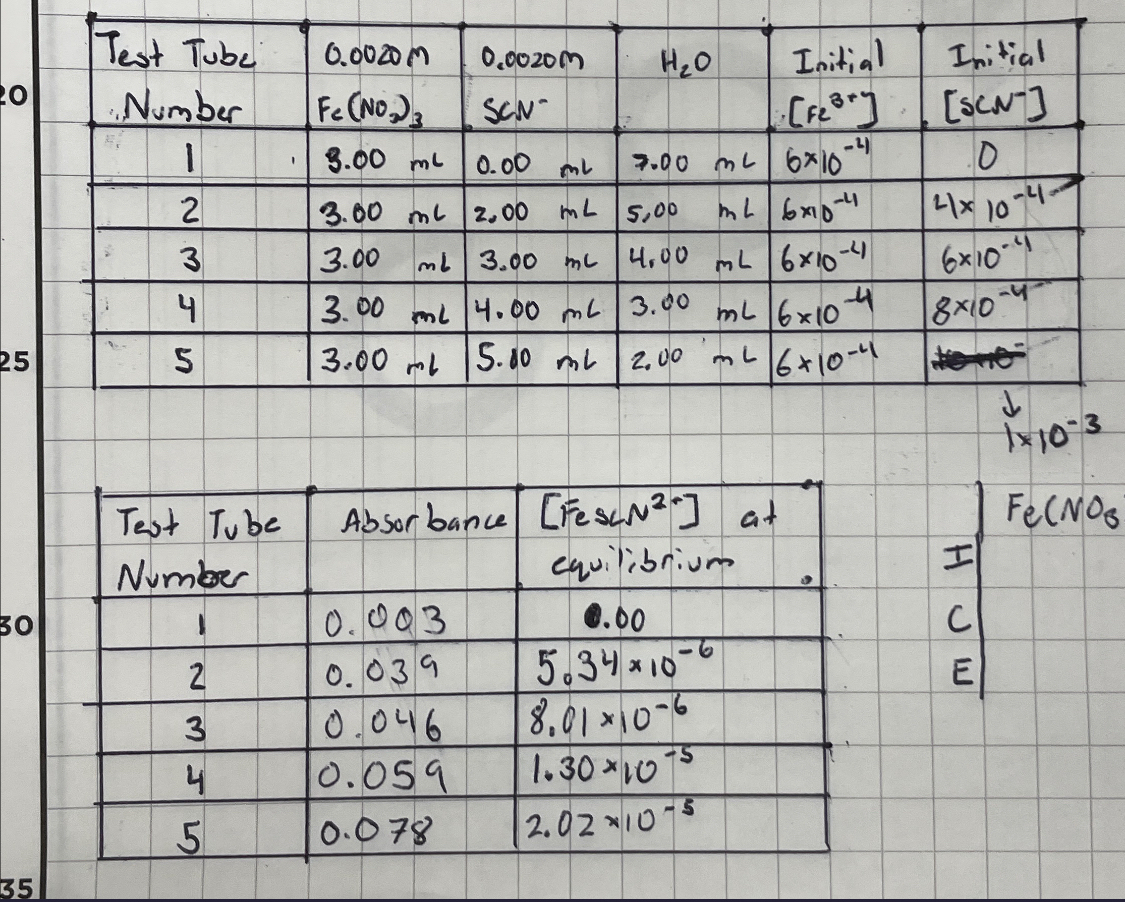 20
Test Tube Number | 0.0020M Fe(NO₂)₃ | 0.0020M SCN⁻ | H₂O | Initial [Fe³⁺] | Initial [SCN⁻]
1 | 3.00 mL | 0.00 mL | 7.00 mL | 6×10⁻⁴ | 0
2 | 3.00 mL | 2.00 mL | 5.00 mL | 6×10⁻⁴ | 4×10⁻⁴
3 | 3.00 mL | 3.00 mL | 4.00 mL | 6×10⁻⁴ | 6×10⁻⁴
4 | 3.00 mL | 4.00 mL | 3.00 mL | 6×10⁻⁴ | 8×10⁻⁴
25
5 | 3.00 mL | 5.00 mL | 2.00 mL | 6×10⁻⁴
↓
1×10⁻³
Test Tube Number | Absorbance | [FeSCN²⁺] at equilibrium
1 | 0.003 | 0.00
2 | 0.039 | 5.34×10⁻⁶
3 | 0.046 | 8.01×10⁻⁶
4 | 0.059 | 1.30×10⁻⁵
5 | 0.078 | 2.02×10⁻⁵
Fe(NO₃
I
C
E
30
35